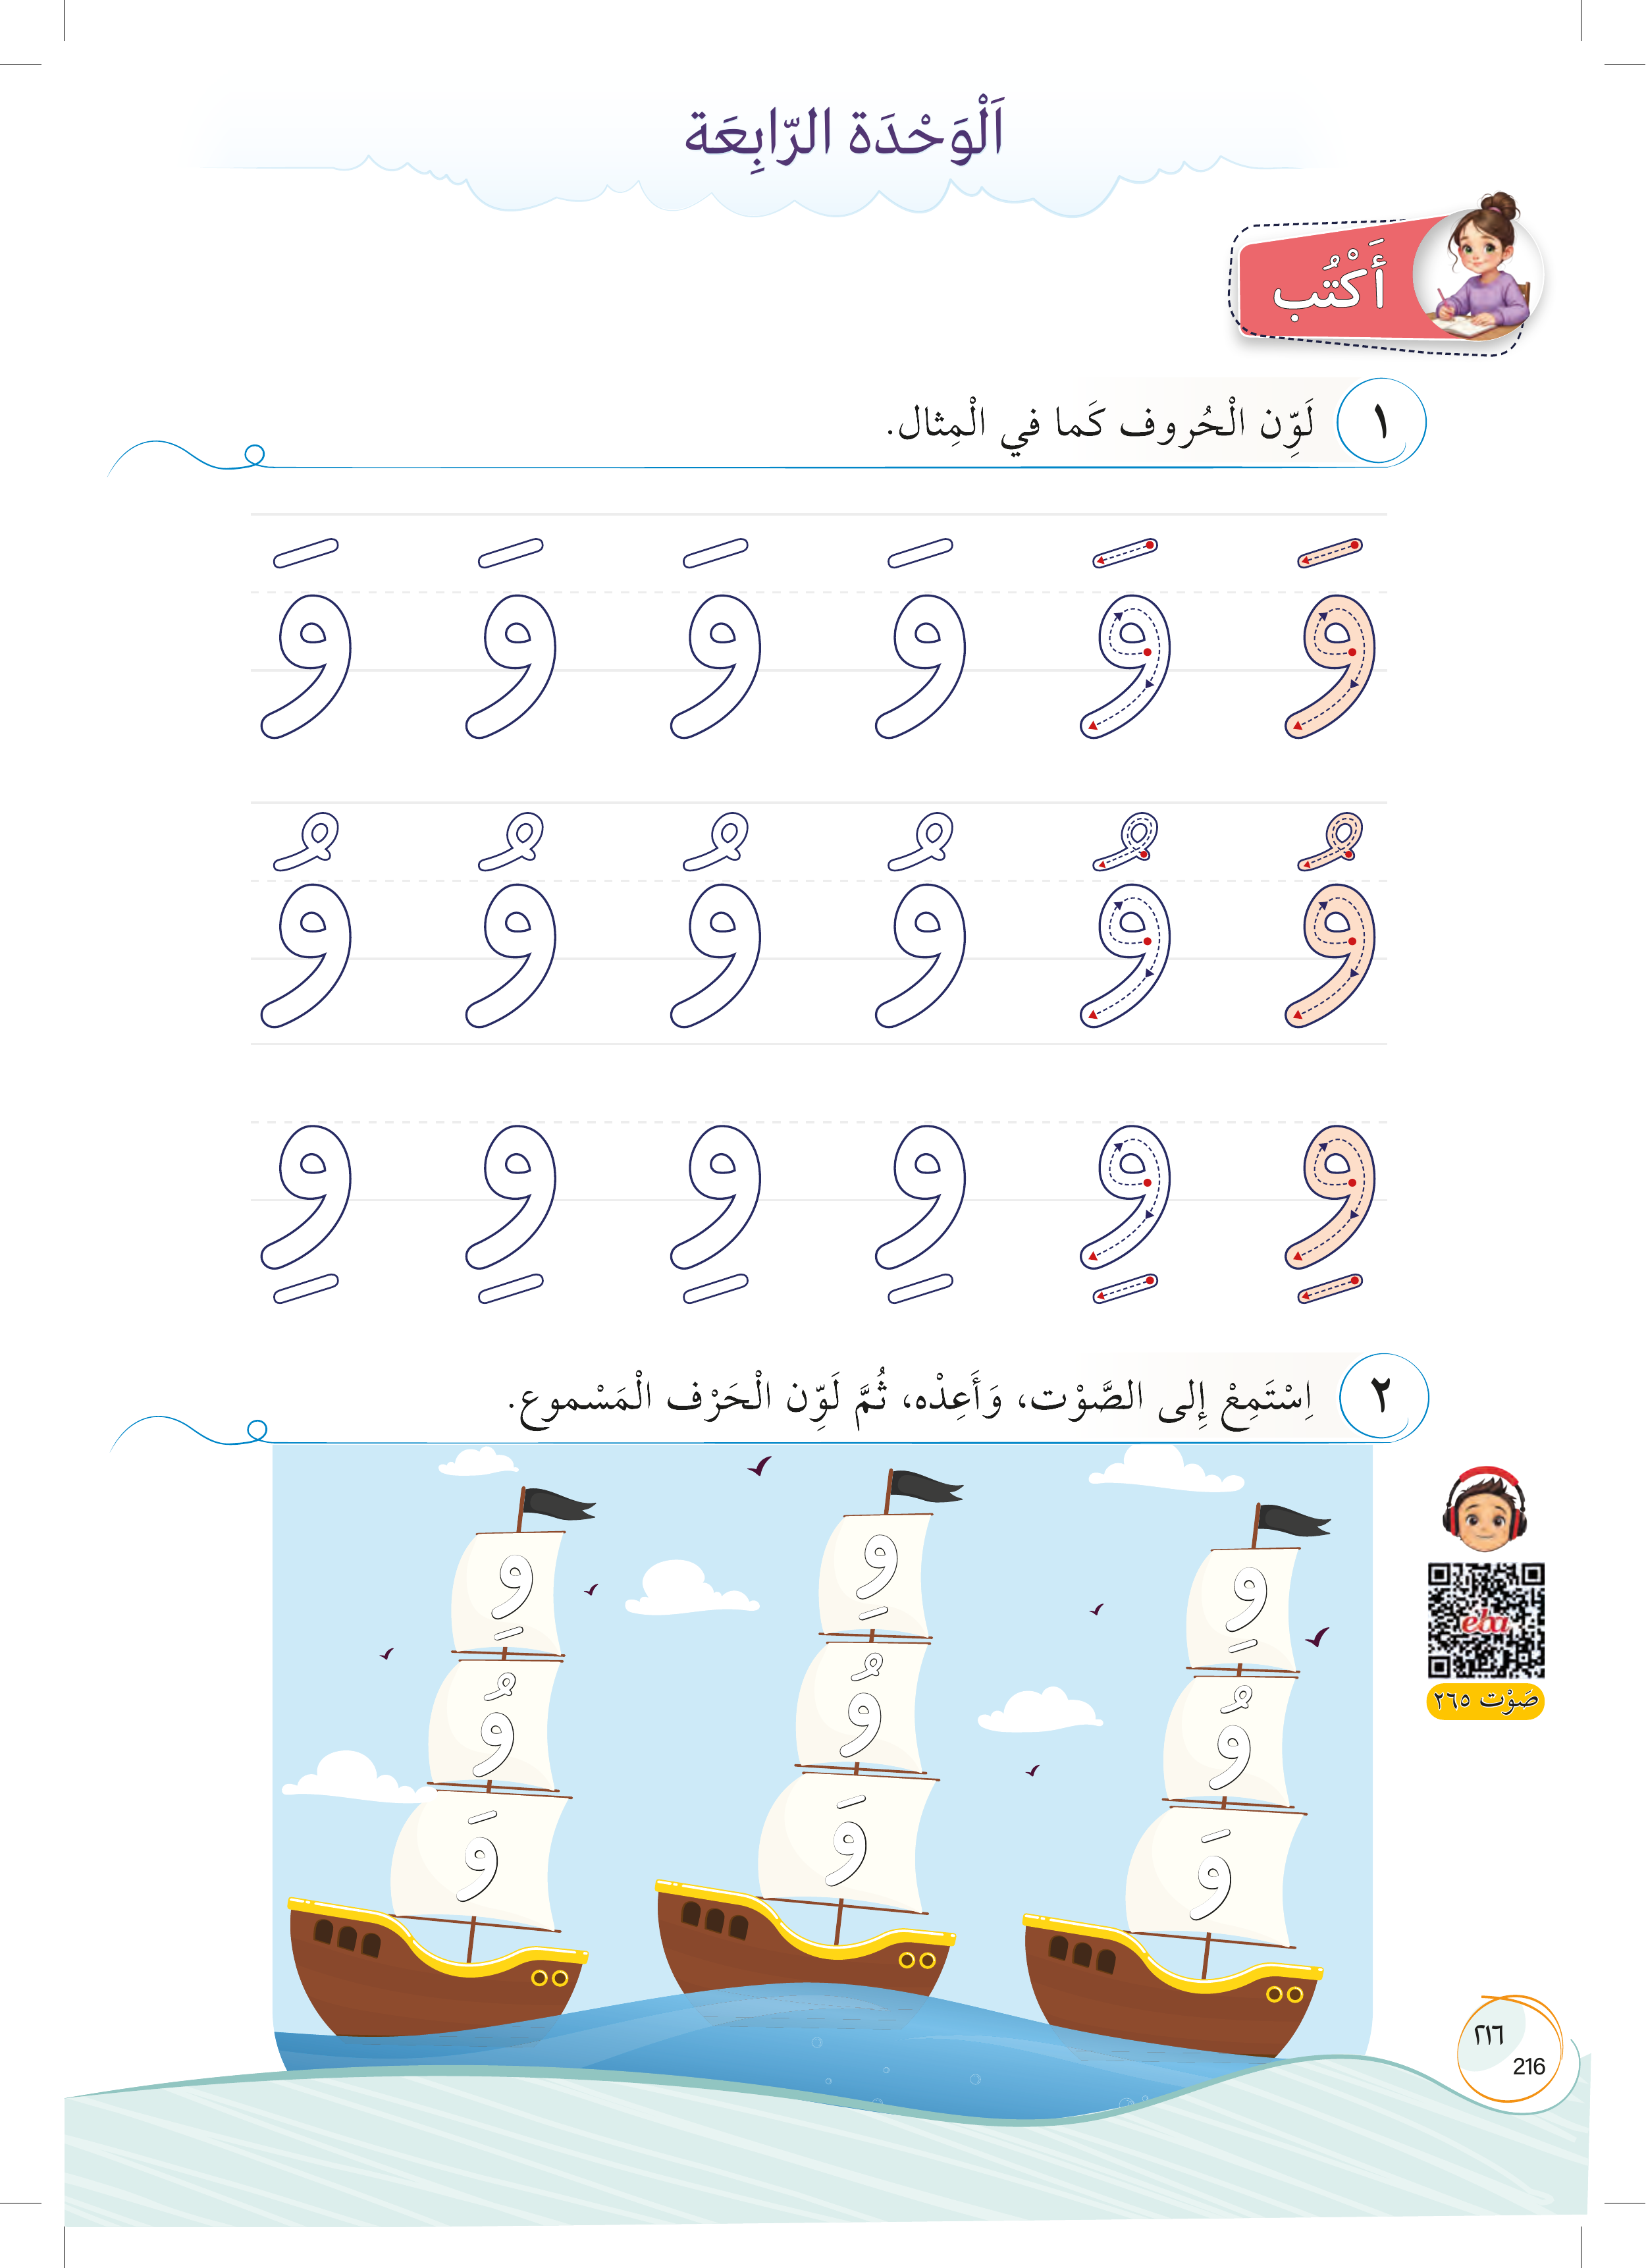 اَلْوَحْدَة الرّابِعَة
أَكْتُب
١ لَوِّن الْحُروف كَما في الْمِثال.
وَ وَ وَ وَ وَ وَ
وُ وُ وُ وُ وُ وُ
وِ وِ وِ وِ وِ وِ
٢ اِسْتَمِعْ إِلى الصَّوْت، وَأَعِدْه، ثُمَّ لَوِّن الْحَرْف الْمَسْموع.
وِ وِ وِ
وُ وُ وُ
وَ وَ وَ
eba
صَوْت ٢٦٥
٢١٦
216